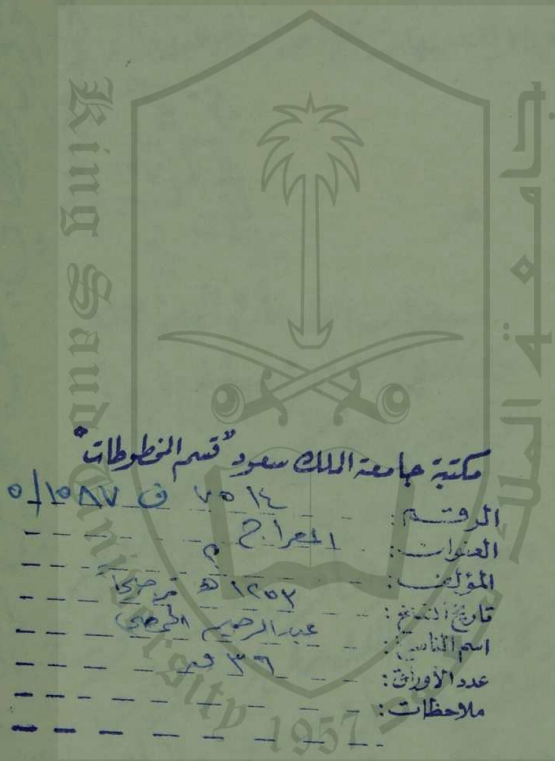 King Saud University
جامعة الملك
مكتبة جامعة الملك سعود "قسم المخطوطات"
الرقم: ٧٥١٤ ف ١٥٨٧/٥
العنوان: المعراج
المؤلف: ؟
تاريخ النسخ: ١٢٥٣ هـ
اسم الناسخ: عبد الرحيم
عدد الأوراق: ٣٩
ملاحظات:
1957